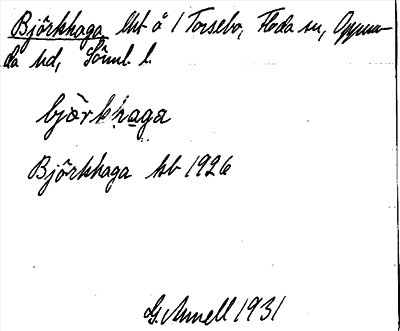 Björkhaga lht å 1 Torsebo, Floda sn, Oppun-
da hd, Söml. l.
björkhaga
Björkhaga kb 1926
G. Annell 1931